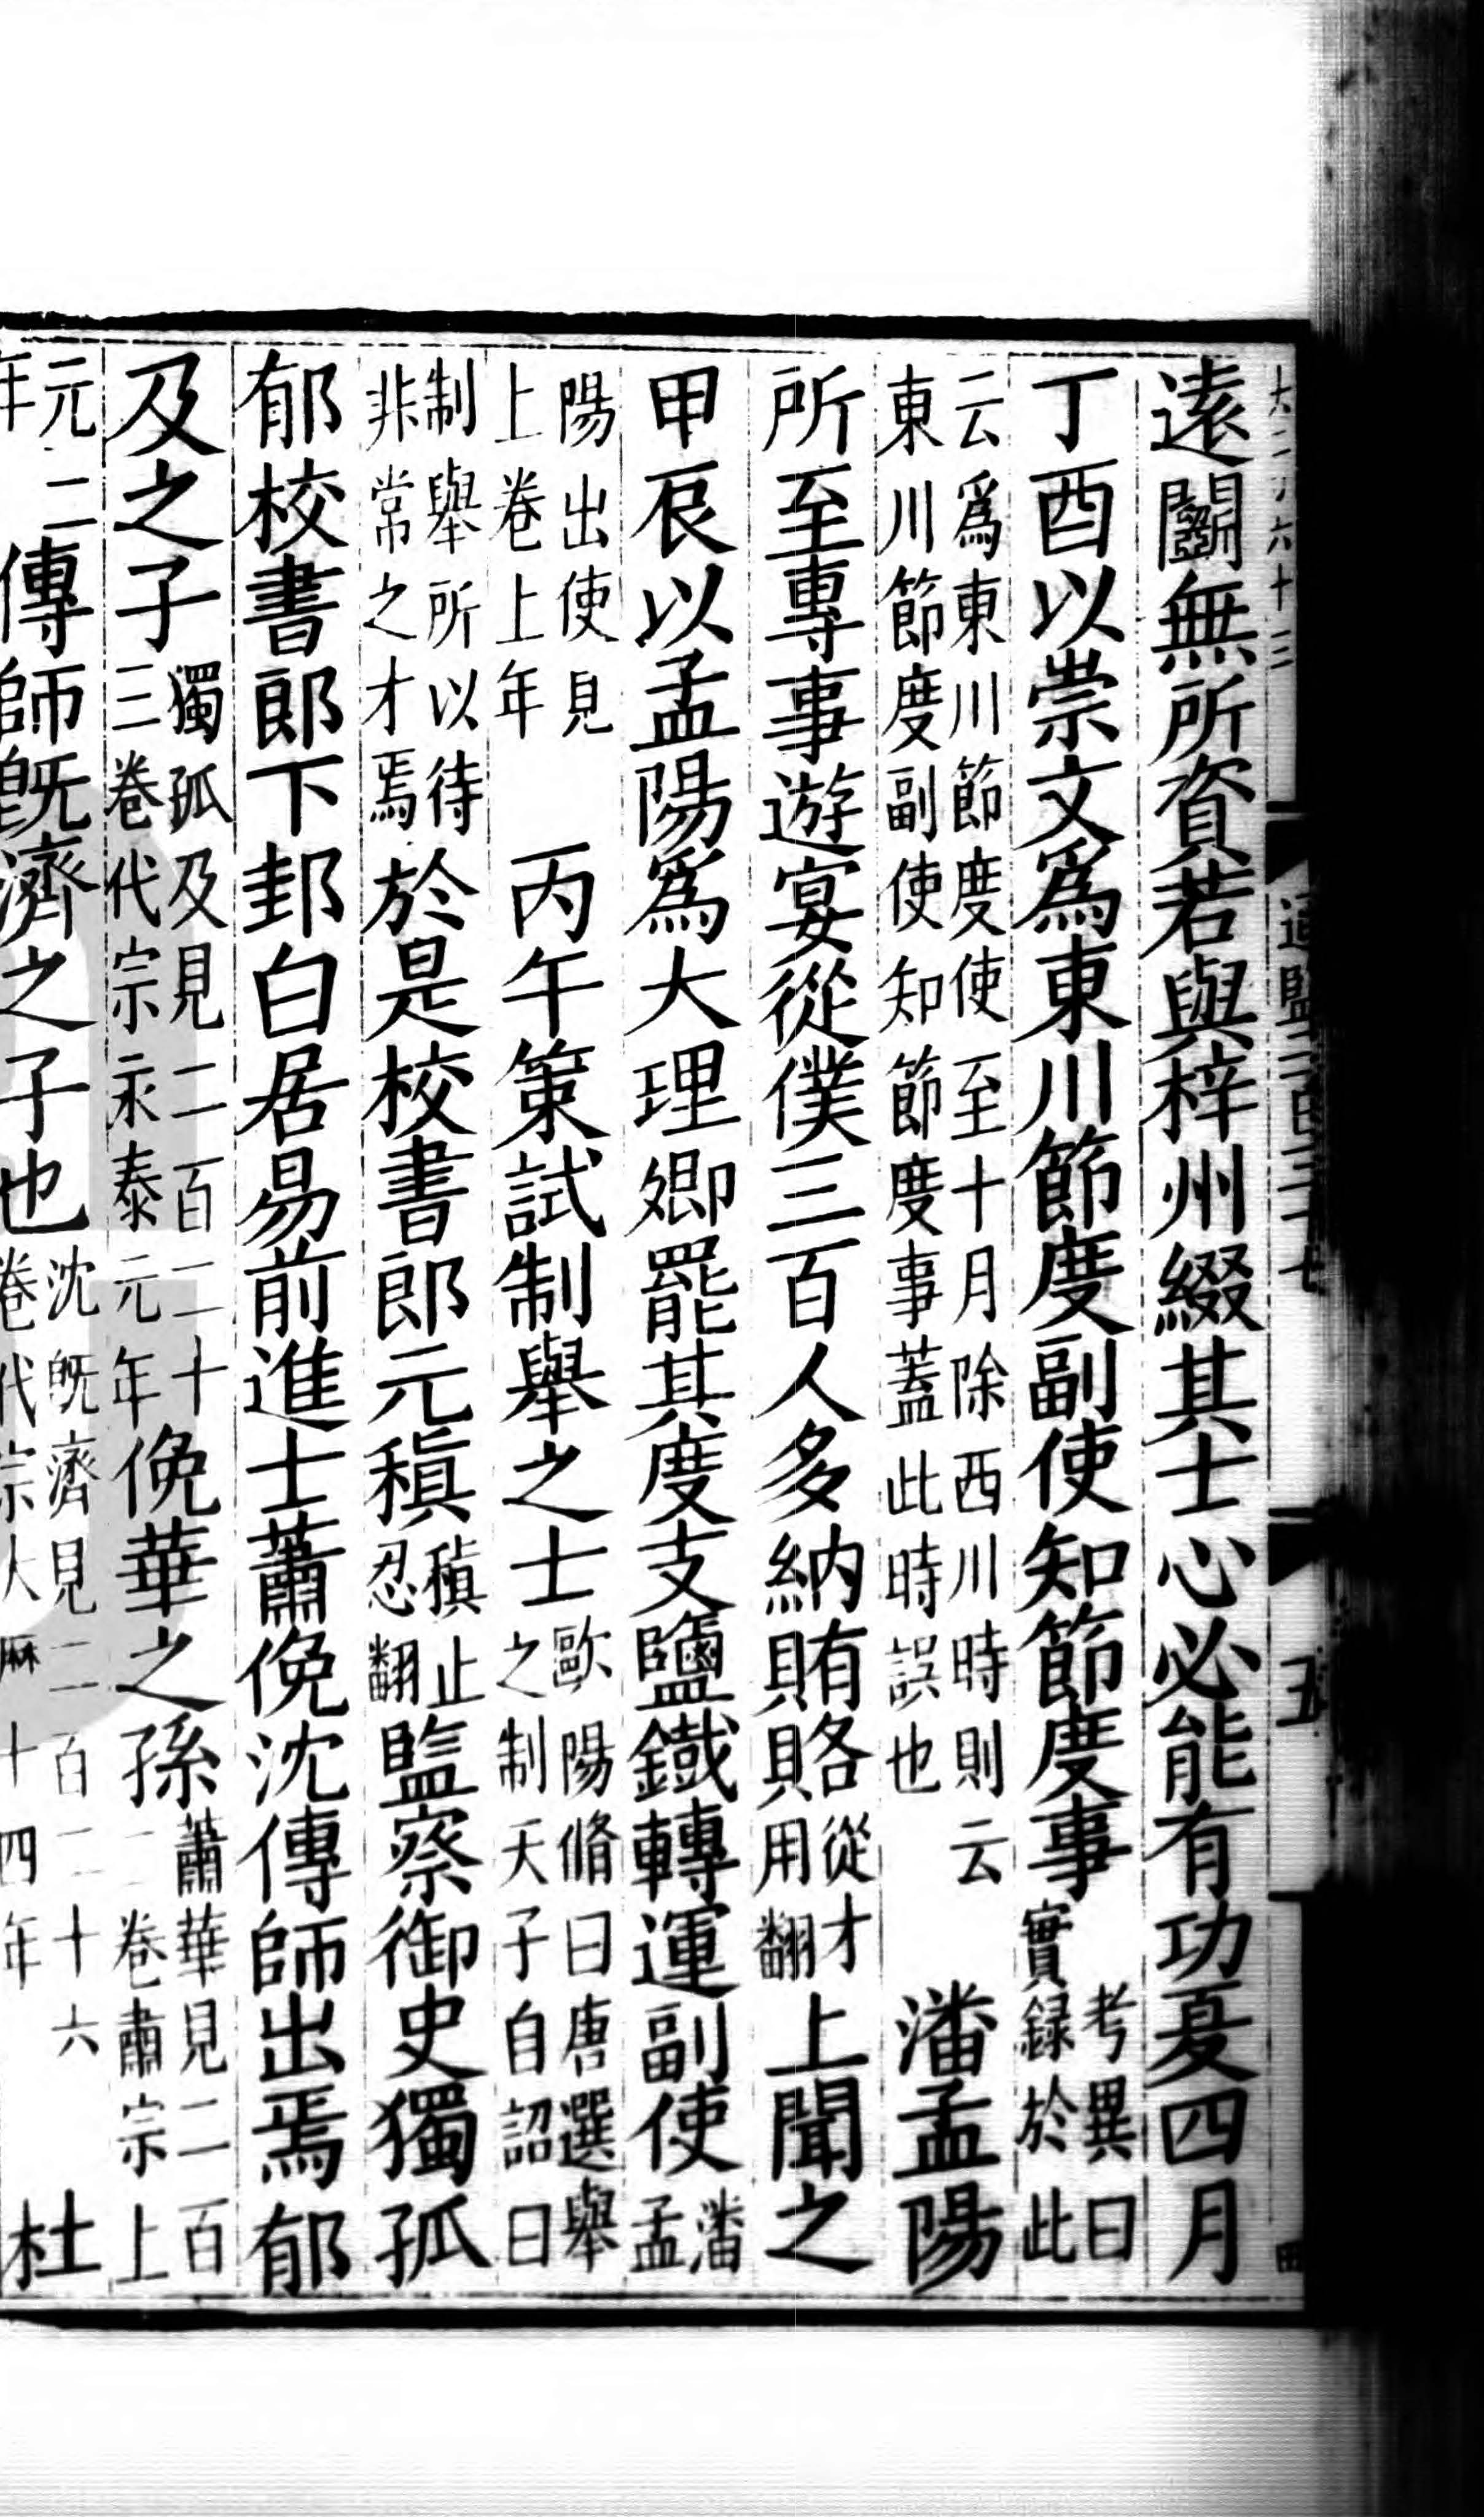 遠鬭無所資若與梓州綴其士心必能有功夏四月
丁酉以崇文爲東川節度副使知節度事考異曰實録於此
云爲東川節度使至十月除西川時則云東川節度副使知節度事蓋此時誤也潘孟陽
所至專事遊宴從僕三百人多納賄賂從才用翻上聞之
甲辰以孟陽爲大理卿罷其度支鹽鐵轉運副使潘孟
陽出使見上卷上年丙午策試制舉之士歐陽脩曰唐選舉之制天子自詔曰
制舉所以待非常之才焉於是校書郎元稹稹止忍翻監察御史獨孤
郁校書郎下邽白居易前進士蕭俛沈傳師出焉郁
及之子獨孤及見二百二十三卷代宗永泰元年俛華之孫蕭華見二百二卷肅宗上
元二年傳師旣濟之子也沈旣濟見二百二十六卷代宗大厤十四年杜
五